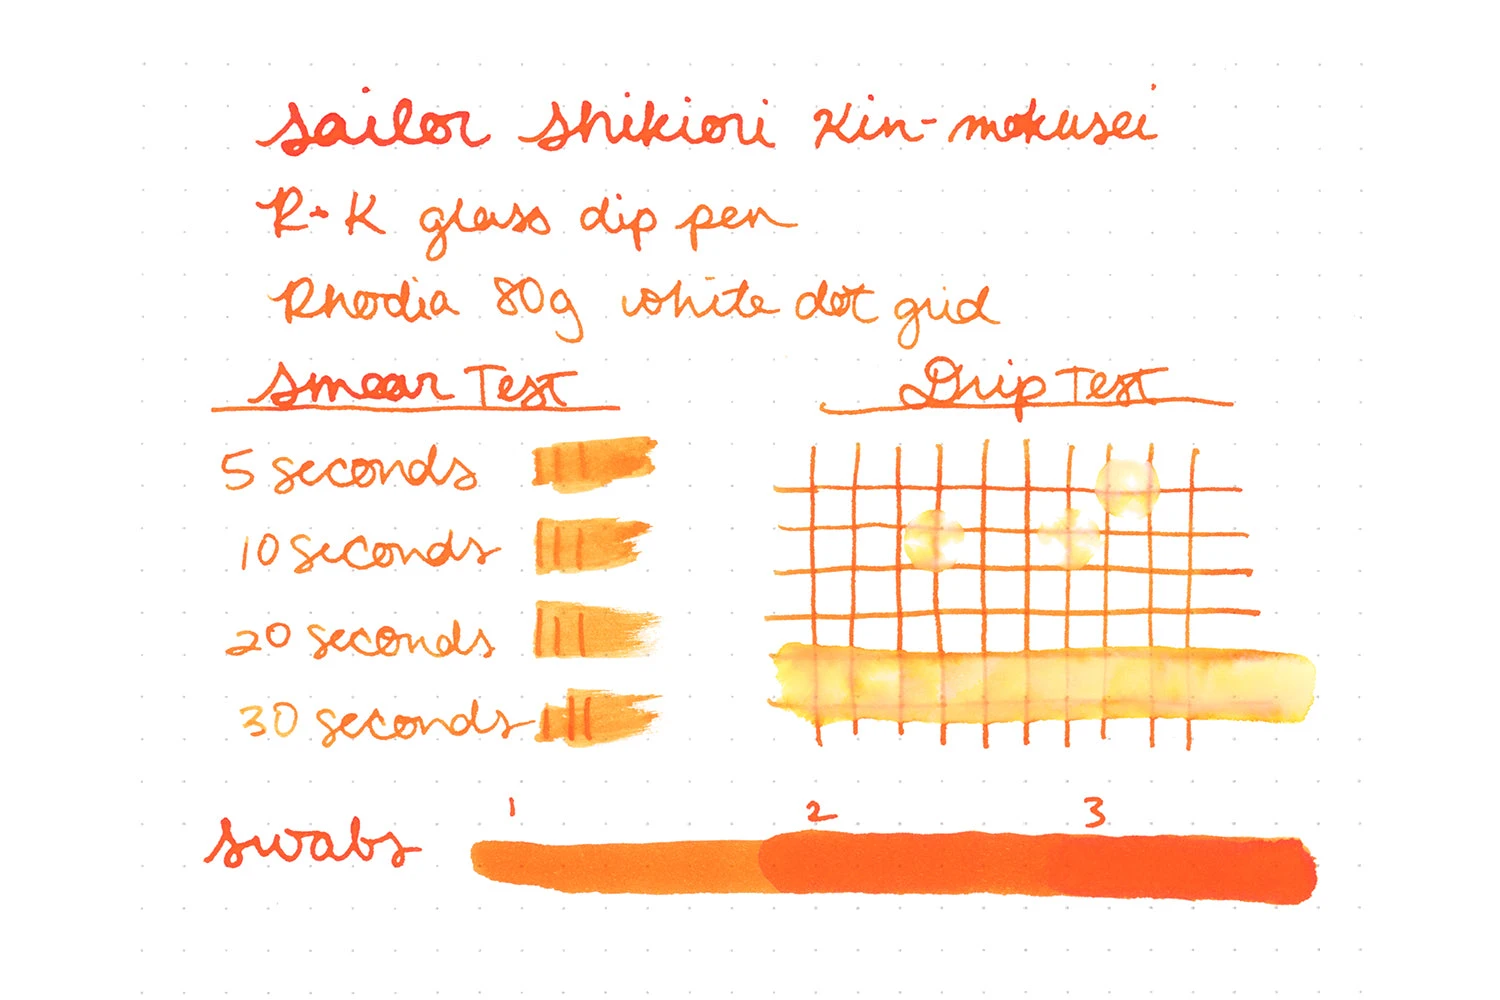 Sailor Shikiori Kin-mokusei
R+K glass dip pen
Rhodia 80g white dot grid
Smear Test
5 seconds
10 seconds
20 seconds
30 seconds
Drip Test
Swabs
1 2 3